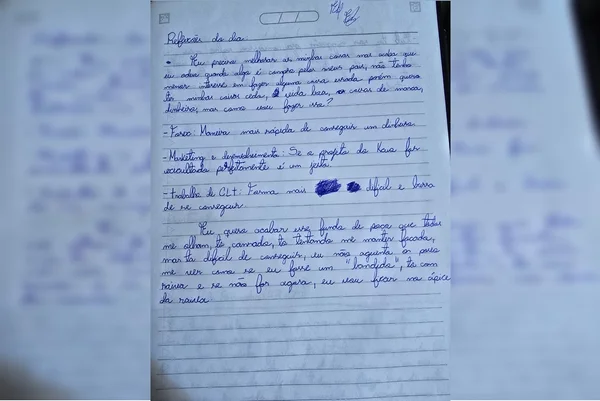 Reflexões do dia
• Eu preciso melhorar as minhas coisas mas acho que
eu odeio quando algo é compra pelos meus pais, não tenho
menos interesse em fazer alguma coisa errada porém quero
ter minhas coisas cedo, vida boa, coisas de marca,
dinheiro, mas como vou fazer isso?
- Foco: Maneira mais rápida de conseguir um dinheiro.
- Marketing e desenvolvimento: Se o projeto da for
executado perfeitamente é um jeito.
- trabalho de CLT: Forma mais difícil e
de se conseguir.
Eu, quero acabar essa de que todos
me olham, to cansada, to tentando me manter focada,
mas ta difícil de conseguir, eu não aguento o povo
me ver como se eu fosse um "bandida", to com
raiva e se não for agora, eu vou ficar no ápice
da raiva.